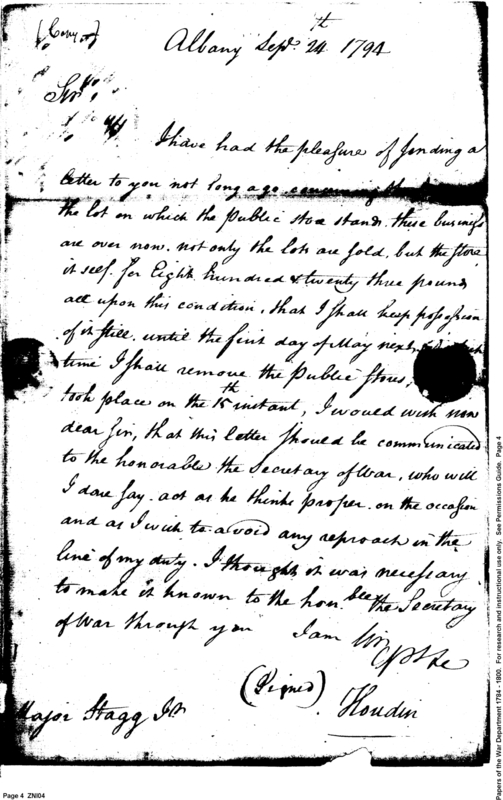 (Copy)
Albany Sepr. 24th 1794
Sir,
I have had the pleasure of sending a
letter to you not long ago concerning the
the lot on which the public store stands. these business
are over now. not only the lots are sold, but the store
it self. for Eight hundred & twenty three pounds
all upon this condition, that I shall keep possession
of it still. until the first day of May next,
time I shall remove the Public Stores,
took place on the 15th instant, I would wish now
dear Sir, that this letter should be communicated
to the honorable the Secretary of War, who will
I dare say. act as he thinks proper. on the occasion
and as I wish to avoid any reproach in the
line of my duty. I thought it was necessary
to make it known to the hon. the Secretary
of War through you I am Sir
(Signed)
Houdin
Major Stagg Jr
Page 4 ZNI04
Papers of the War Department 1784 - 1800. For research and instructional use only. See Permissions Guide. Page 4